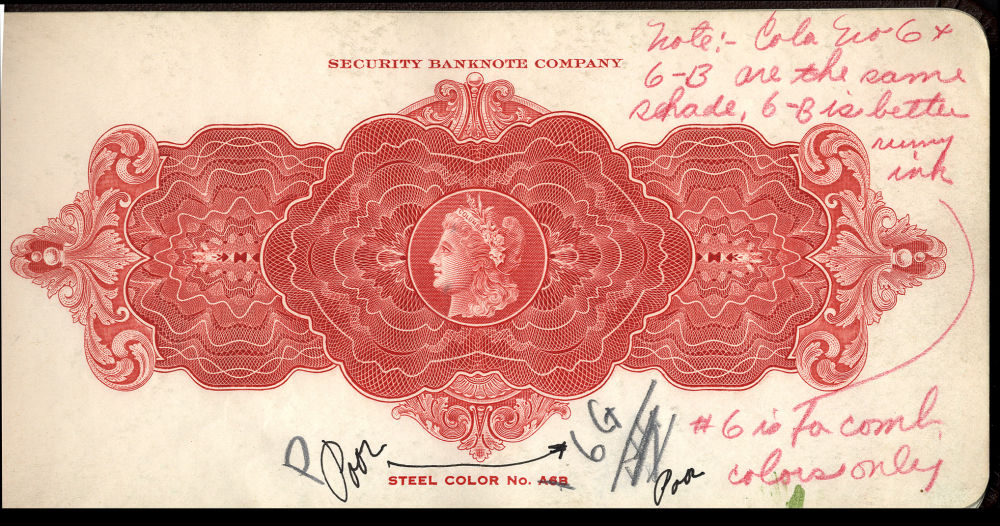 SECURITY BANKNOTE COMPANY
Note:- Colo No 6 +
6-B are the same
schade, 6-B is better
runny
ink
# 6 is For comb,
colors only
6G
D
Poor
Poor
STEEL COLOR No. A6B